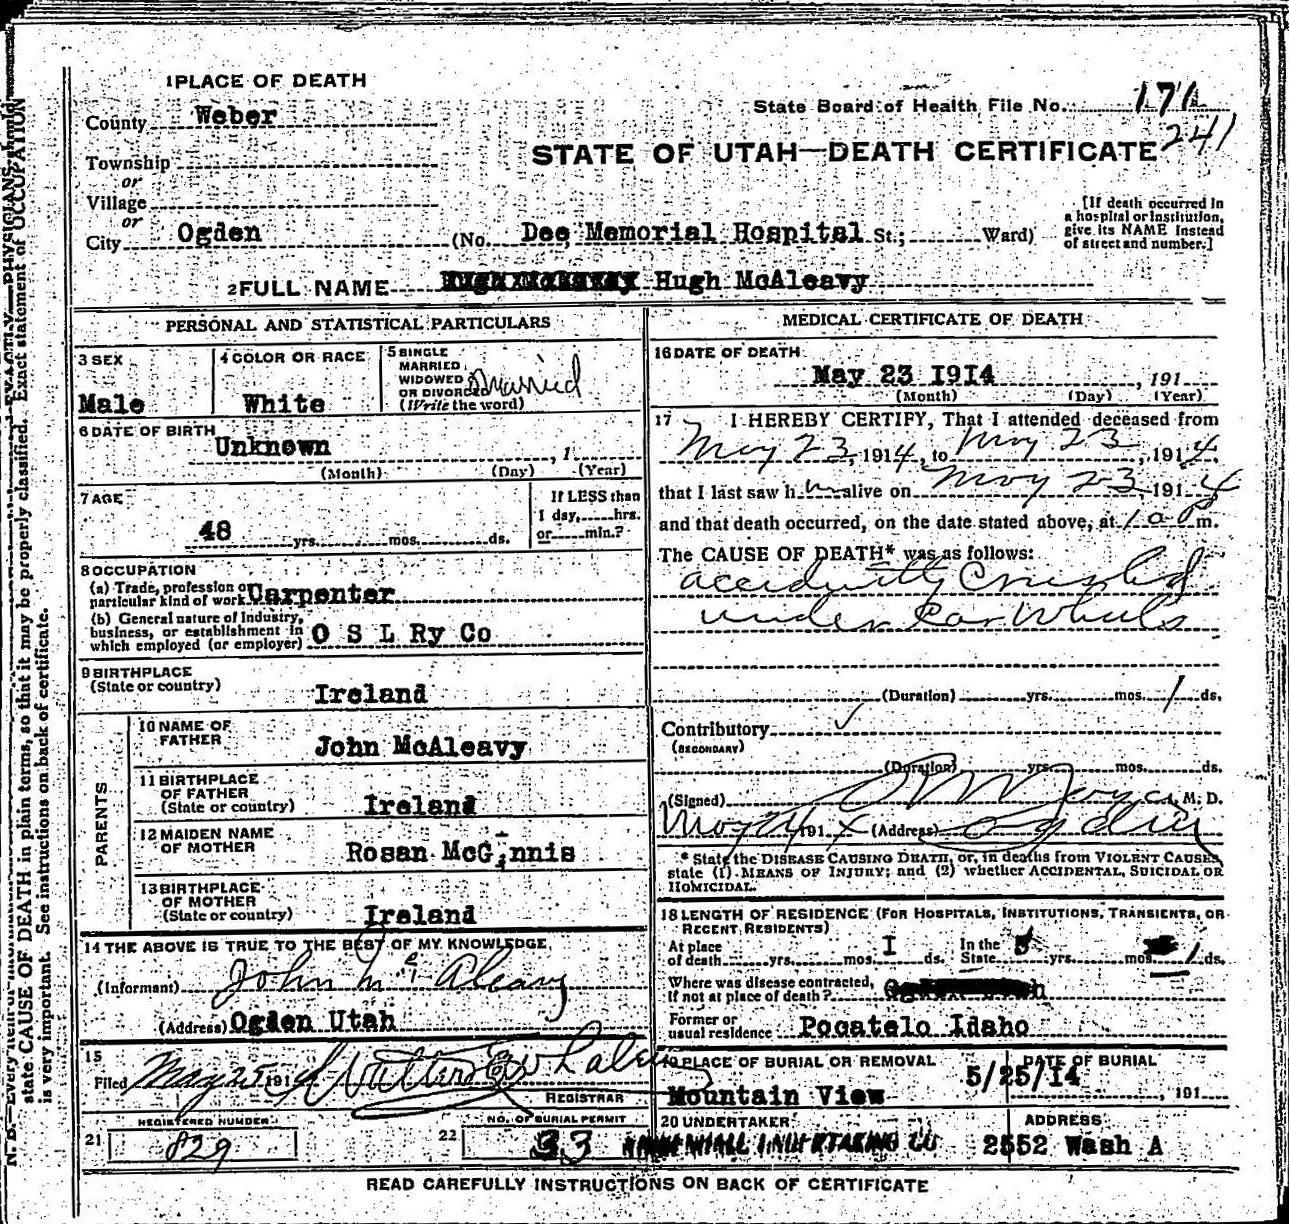 1 PLACE OF DEATH
County Weber
State Board of Health File No. 171
241
Township
or
Village
or
City Ogden
STATE OF UTAH—DEATH CERTIFICATE
(No. Dee Memorial Hospital St.; Ward)
[If death occurred in
a hospital or institution,
give its NAME instead
of street and number.]
2 FULL NAME Hugh McAleavy
PERSONAL AND STATISTICAL PARTICULARS
3 SEX
Male
4 COLOR OR RACE
White
5 SINGLE
MARRIED
WIDOWED
OR DIVORCED Married
(Write the word)
6 DATE OF BIRTH
Unknown , 1
(Month) (Day) (Year)
7 AGE
48 yrs. mos. ds.
If LESS than
1 day, hrs.
or min.?
8 OCCUPATION
(a) Trade, profession or
particular kind of work Carpenter
(b) General nature of Industry,
business, or establishment in
which employed (or employer) O S L Ry Co
9 BIRTHPLACE
(State or country)
Ireland
PARENTS
10 NAME OF
FATHER
John McAleavy
11 BIRTHPLACE
OF FATHER
(State or country) Ireland
12 MAIDEN NAME
OF MOTHER
Rosan McGinnis
13 BIRTHPLACE
OF MOTHER
(State or country) Ireland
14 THE ABOVE IS TRUE TO THE BEST OF MY KNOWLEDGE
(Informant) John Mc Aleavy
(Address) Ogden Utah
15
Filed May 25 191
REGISTRAR
REGISTERED NUMBER
21 829
NO. OF BURIAL PERMIT
22 33
MEDICAL CERTIFICATE OF DEATH
16 DATE OF DEATH
May 23 1914 , 191
(Month) (Day) (Year)
17 I HEREBY CERTIFY, That I attended deceased from
May 23, 1914, to May 23, 1914,
that I last saw h alive on May 23 1914
and that death occurred, on the date stated above, at m.
The CAUSE OF DEATH* was as follows:
accidently Crushed
under Car Wheels
(Duration) yrs. mos. 1 ds.
Contributory
(SECONDARY)
(Duration) yrs. mos. ds.
(Signed) M. D.
May 24 191 (Address) Ogden
* State the DISEASE CAUSING DEATH, or, in deaths from VIOLENT CAUSES,
state (1) MEANS OF INJURY; and (2) whether ACCIDENTAL, SUICIDAL OR
HOMICIDAL.
18 LENGTH OF RESIDENCE (FOR HOSPITALS, INSTITUTIONS, TRANSIENTS, OR
RECENT RESIDENTS)
At place
of death yrs. mos. I ds.
In the
State yrs. mos. 1 ds.
Where was disease contracted,
If not at place of death?
Former or
usual residence Pocatelo Idaho
19 PLACE OF BURIAL OR REMOVAL
Mountain View
DATE OF BURIAL
5/25/14 , 191
20 UNDERTAKER
UNDERTAKING CO
ADDRESS
2552 Wash A
READ CAREFULLY INSTRUCTIONS ON BACK OF CERTIFICATE
state CAUSE OF DEATH in plain terms, so that it may be properly classified. Exact statement of OCCUPATION
is very important. See instructions on back of certificate.